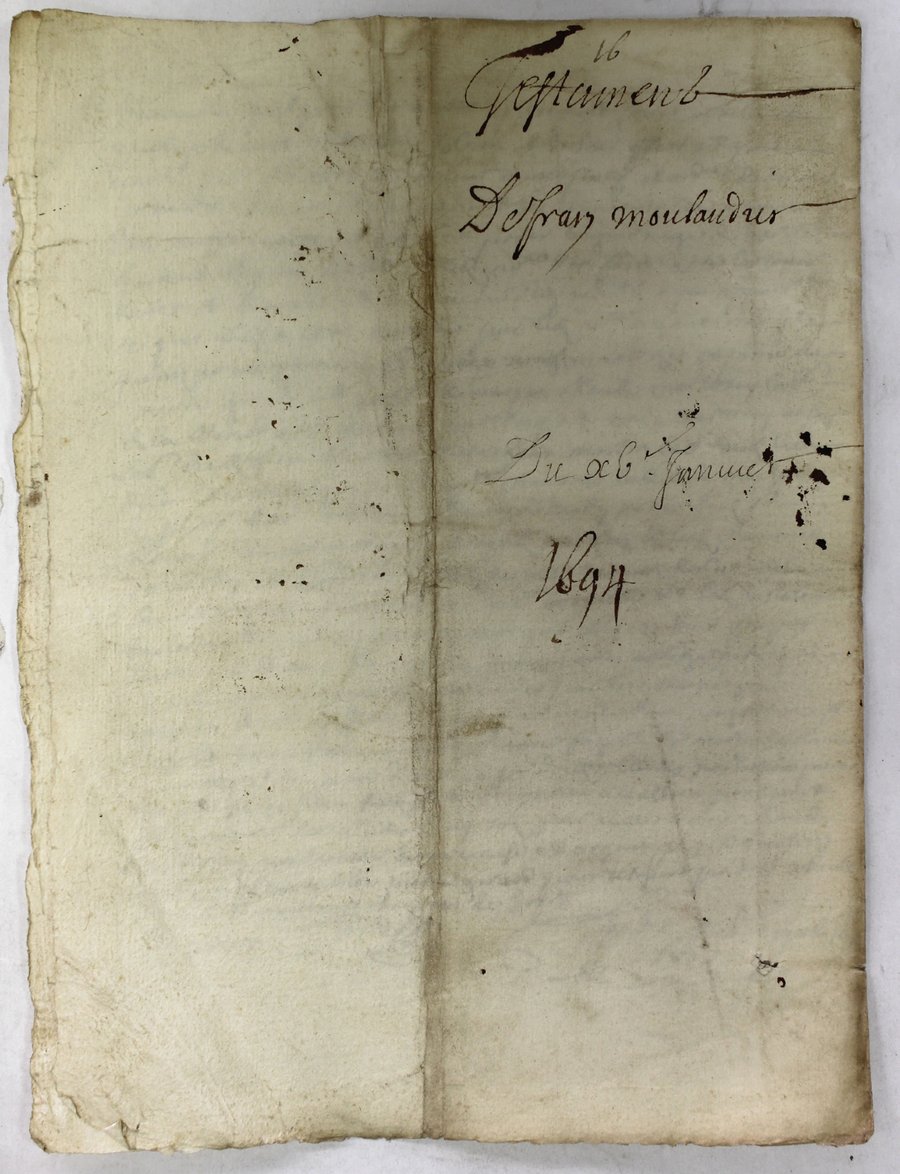 16
Testament
De fran moulaudier
Du xve Janvier
1694